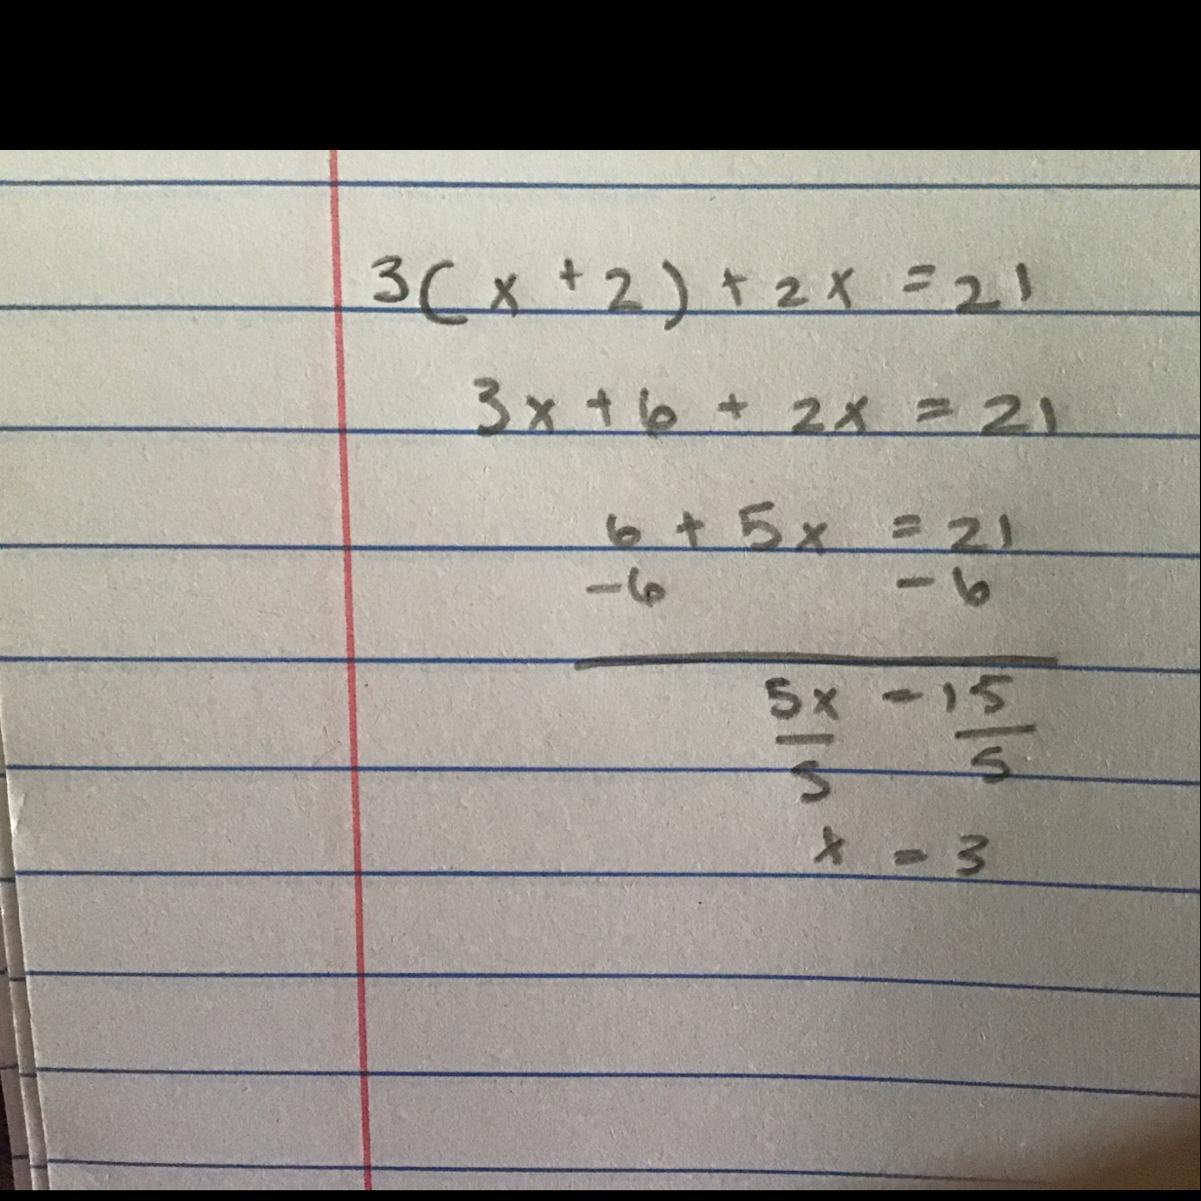 3(x + 2) + 2x = 21
3x + 6 + 2x = 21
6 + 5x = 21
-6 - 6
5x = 15
5 5
x = 3